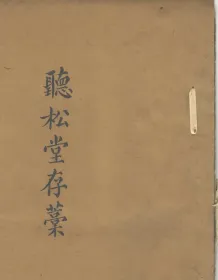 聽松堂存藁